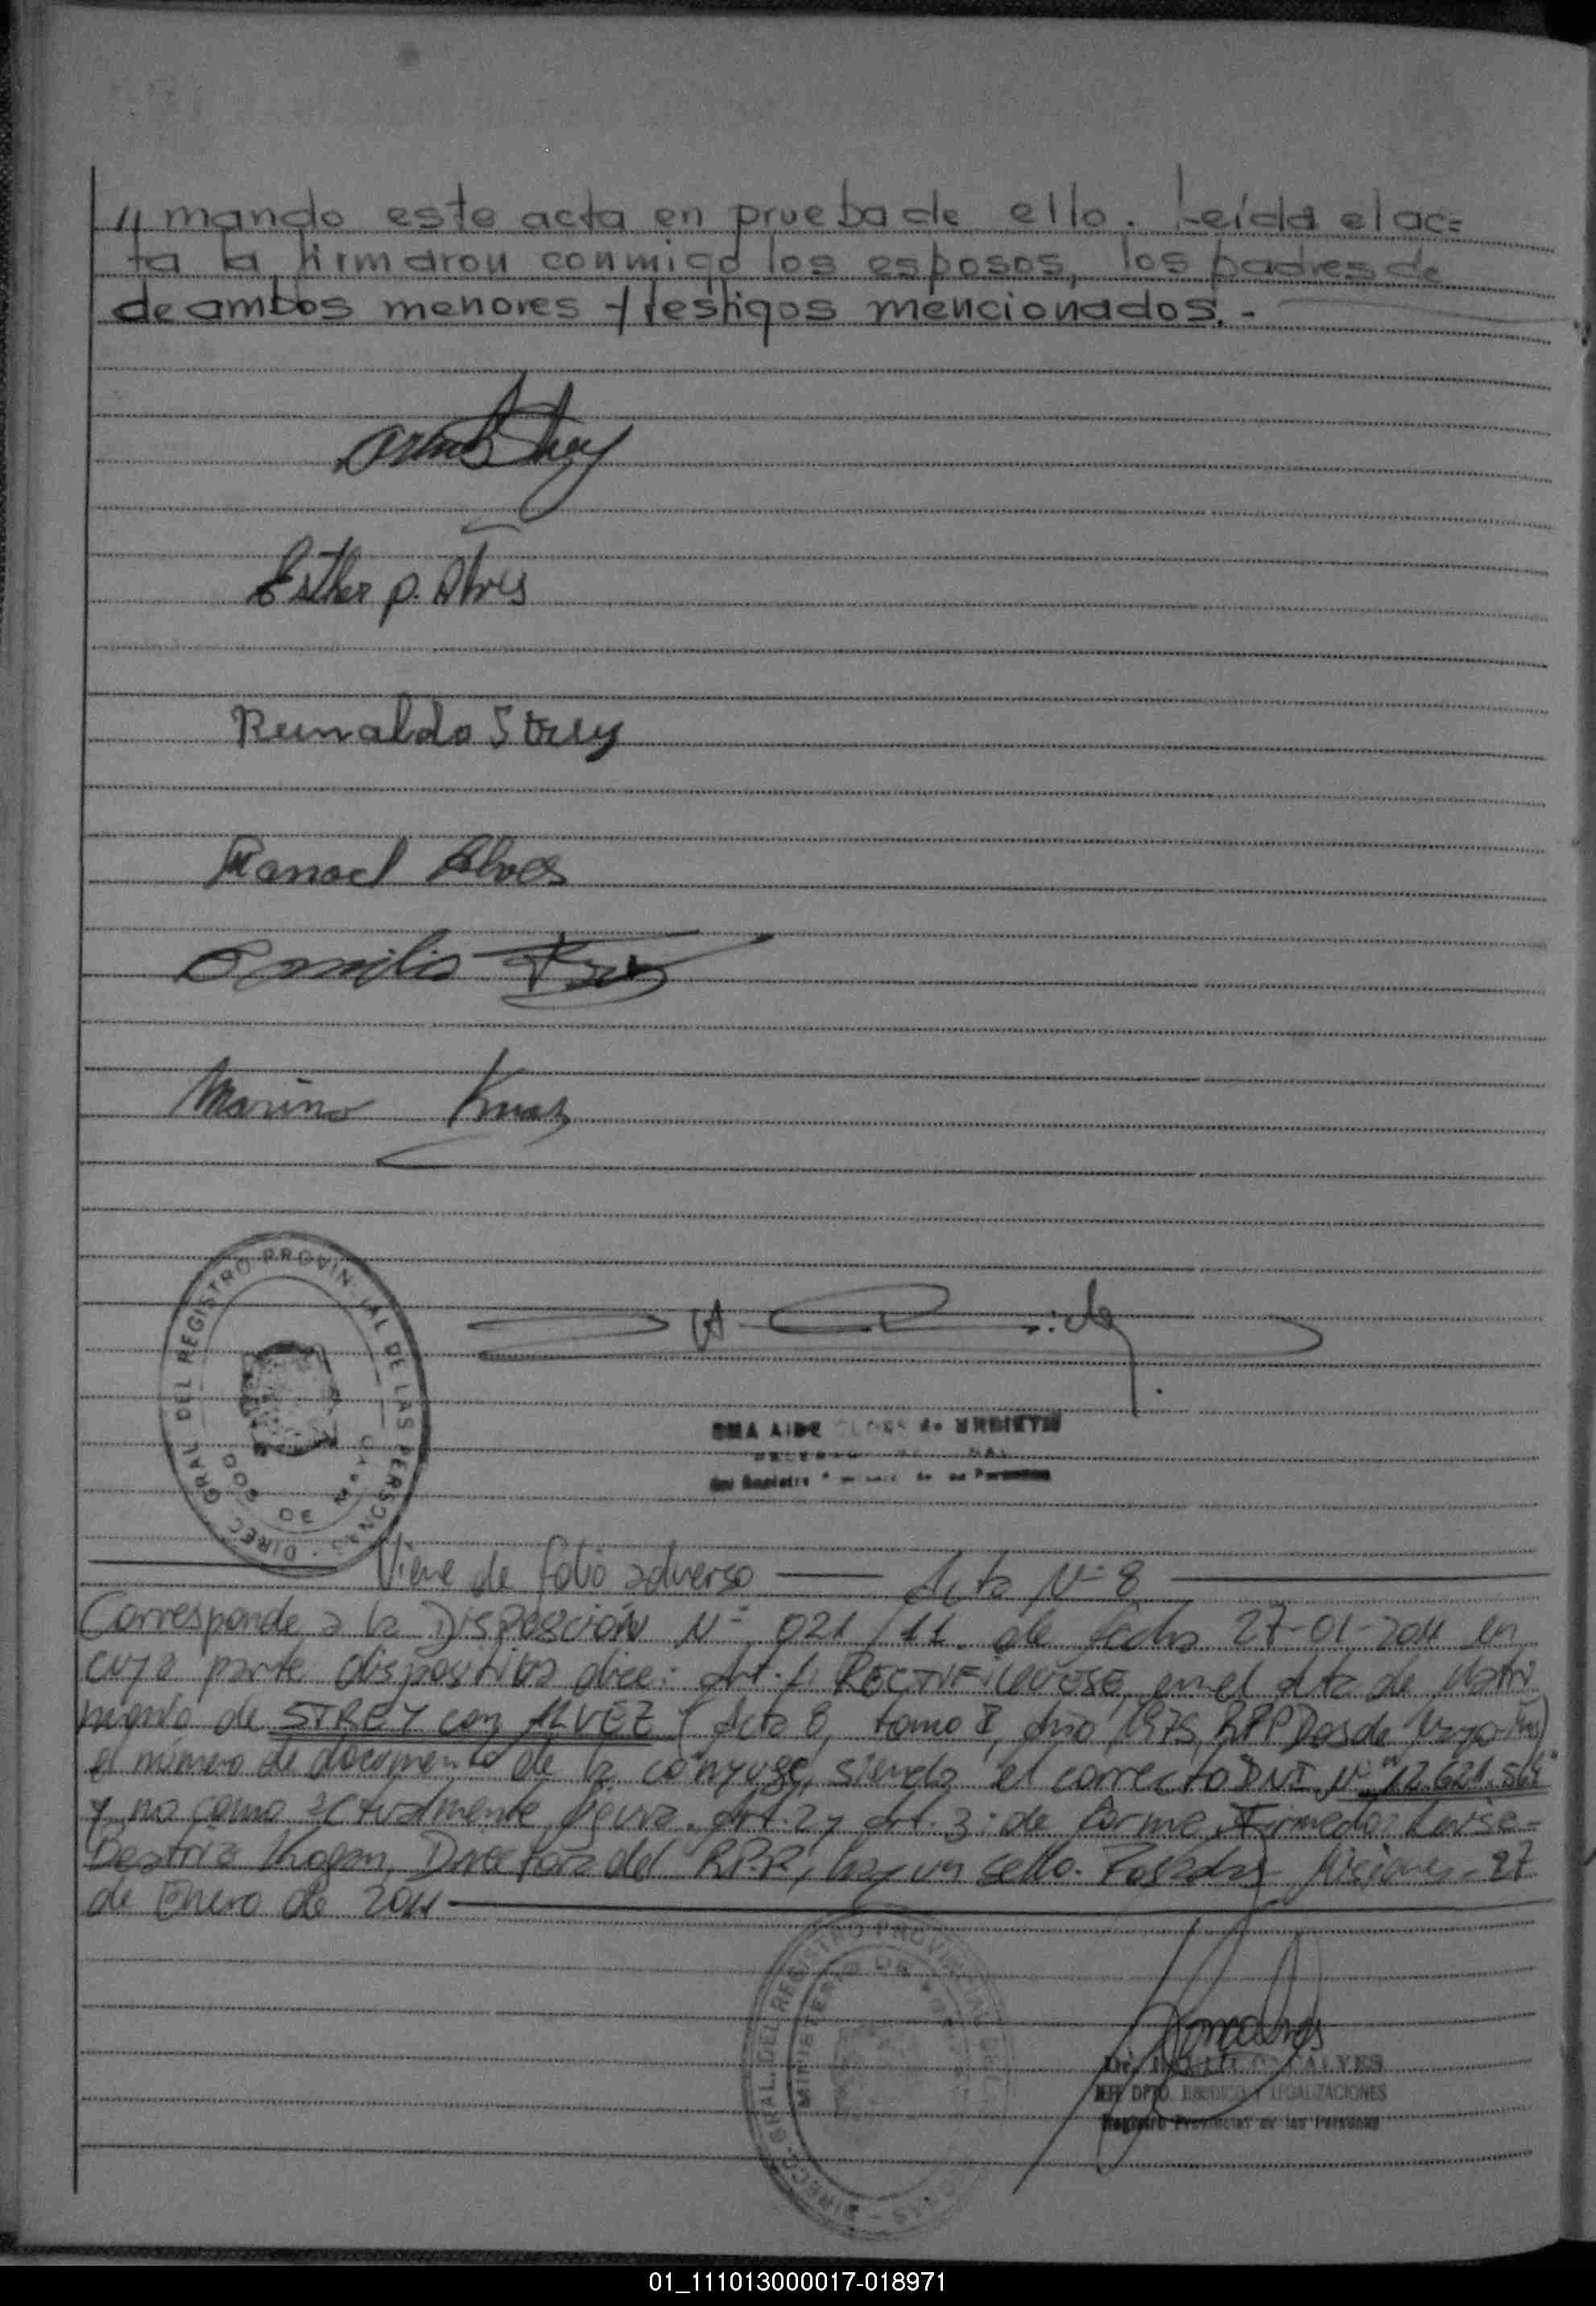 // mando este acta en prueba de ello. Leída el ac=
ta la firmaron conmigo los esposos, los padres de
de ambos menores y testigos mencionados. -
Esther p. Alves
Reinaldo Strey
Manoel Alves
Emilio
Marino
DIREC. GRAL. DEL REGISTRO PROVINCIAL DE LAS PERSONAS
Viene de folio adverso — Acta Nº 8
Corresponde a la Disposición Nº 021/11. de fecha 27-01-2011 en
cuya parte dispositiva dice: Art. 1: RECTIFIQUESE, en el Acta de Matri
monio de STREY con ALVEZ (Acta 8, tomo I, año 1975, RPP Dos de Mayo Mns)
el número de documento de la cónyuge, siendo el correcto DNI Nº "12.621.564"
y no como actualmente figura. Art. 2 y Art. 3: de forma. Firmado: Luisa
Beatriz Kogan, Directora del R.P.P., hay un sello. Posadas Misiones. 27
de Enero de 2011
DIRECC. GRAL. DEL REGISTRO PROVINCIAL DE
MINISTERIO DE
JEFE DPTO. JURIDICO Y LEGALIZACIONES
Registro Provincial de las Personas
01_111013000017-018971